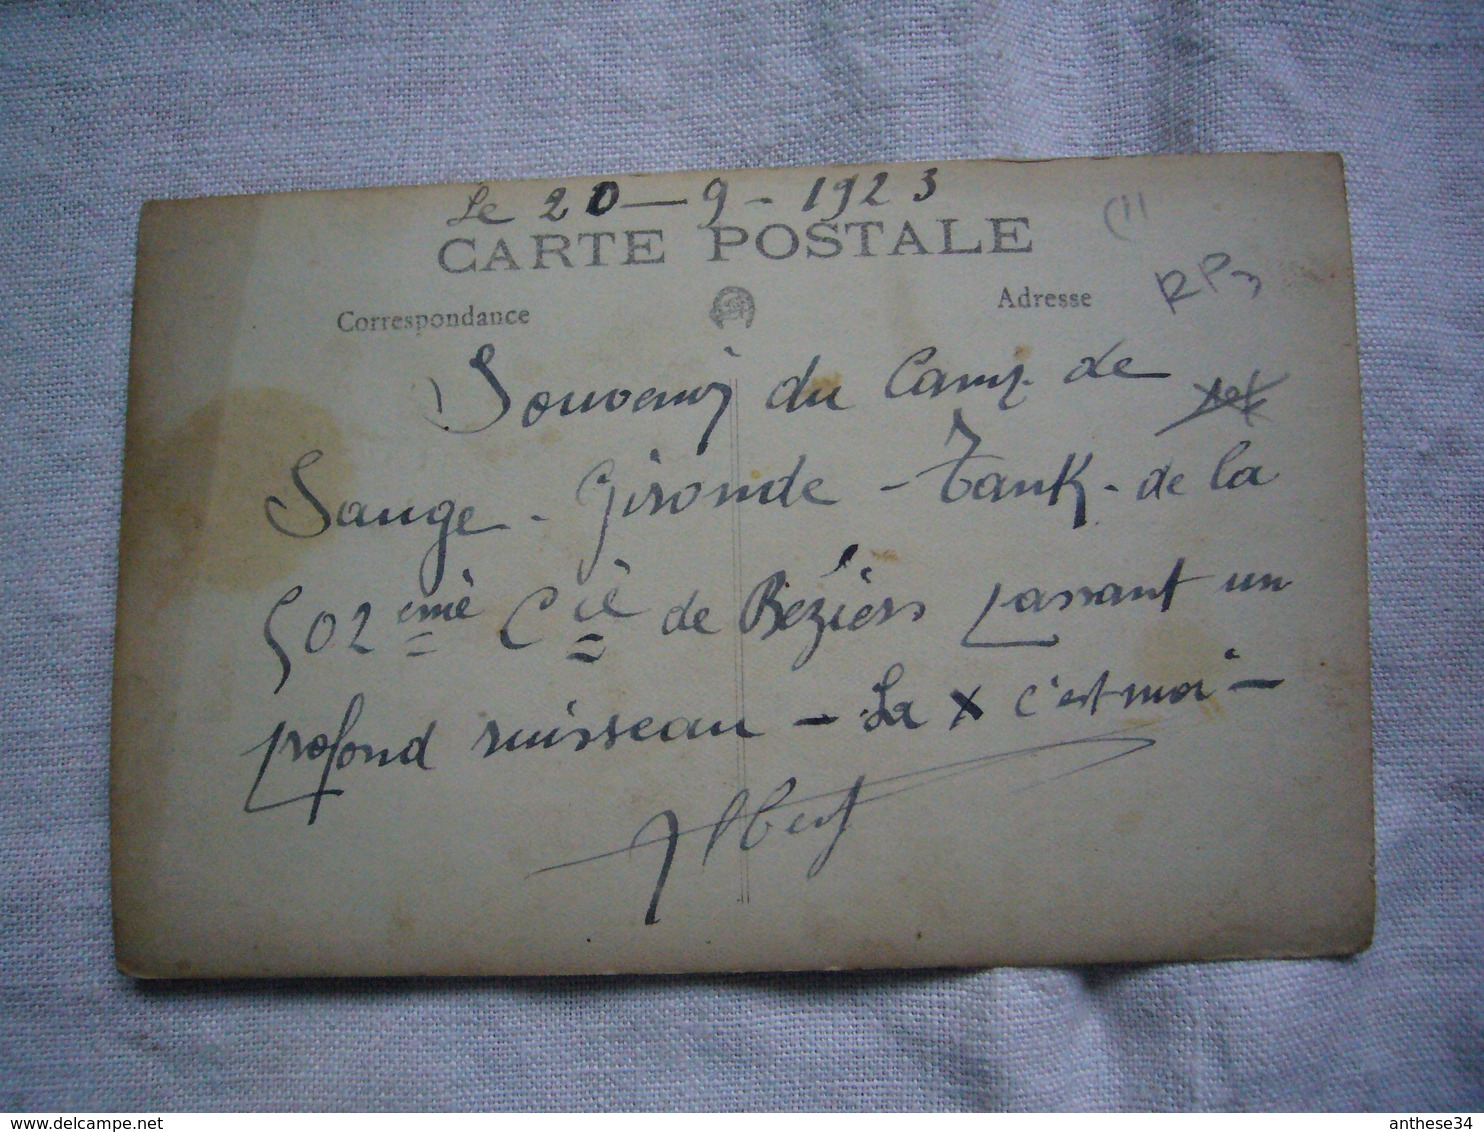 Le 20 - 9 - 1923
CARTE POSTALE
Correspondance
Adresse
RP
Souvenir du Camp de
Sauge - Gironde - Tank - de la
502ème Cie de Béziers passant un
profond ruisseau - La X c'est moi -
Albert
delcampe.net
anthese34